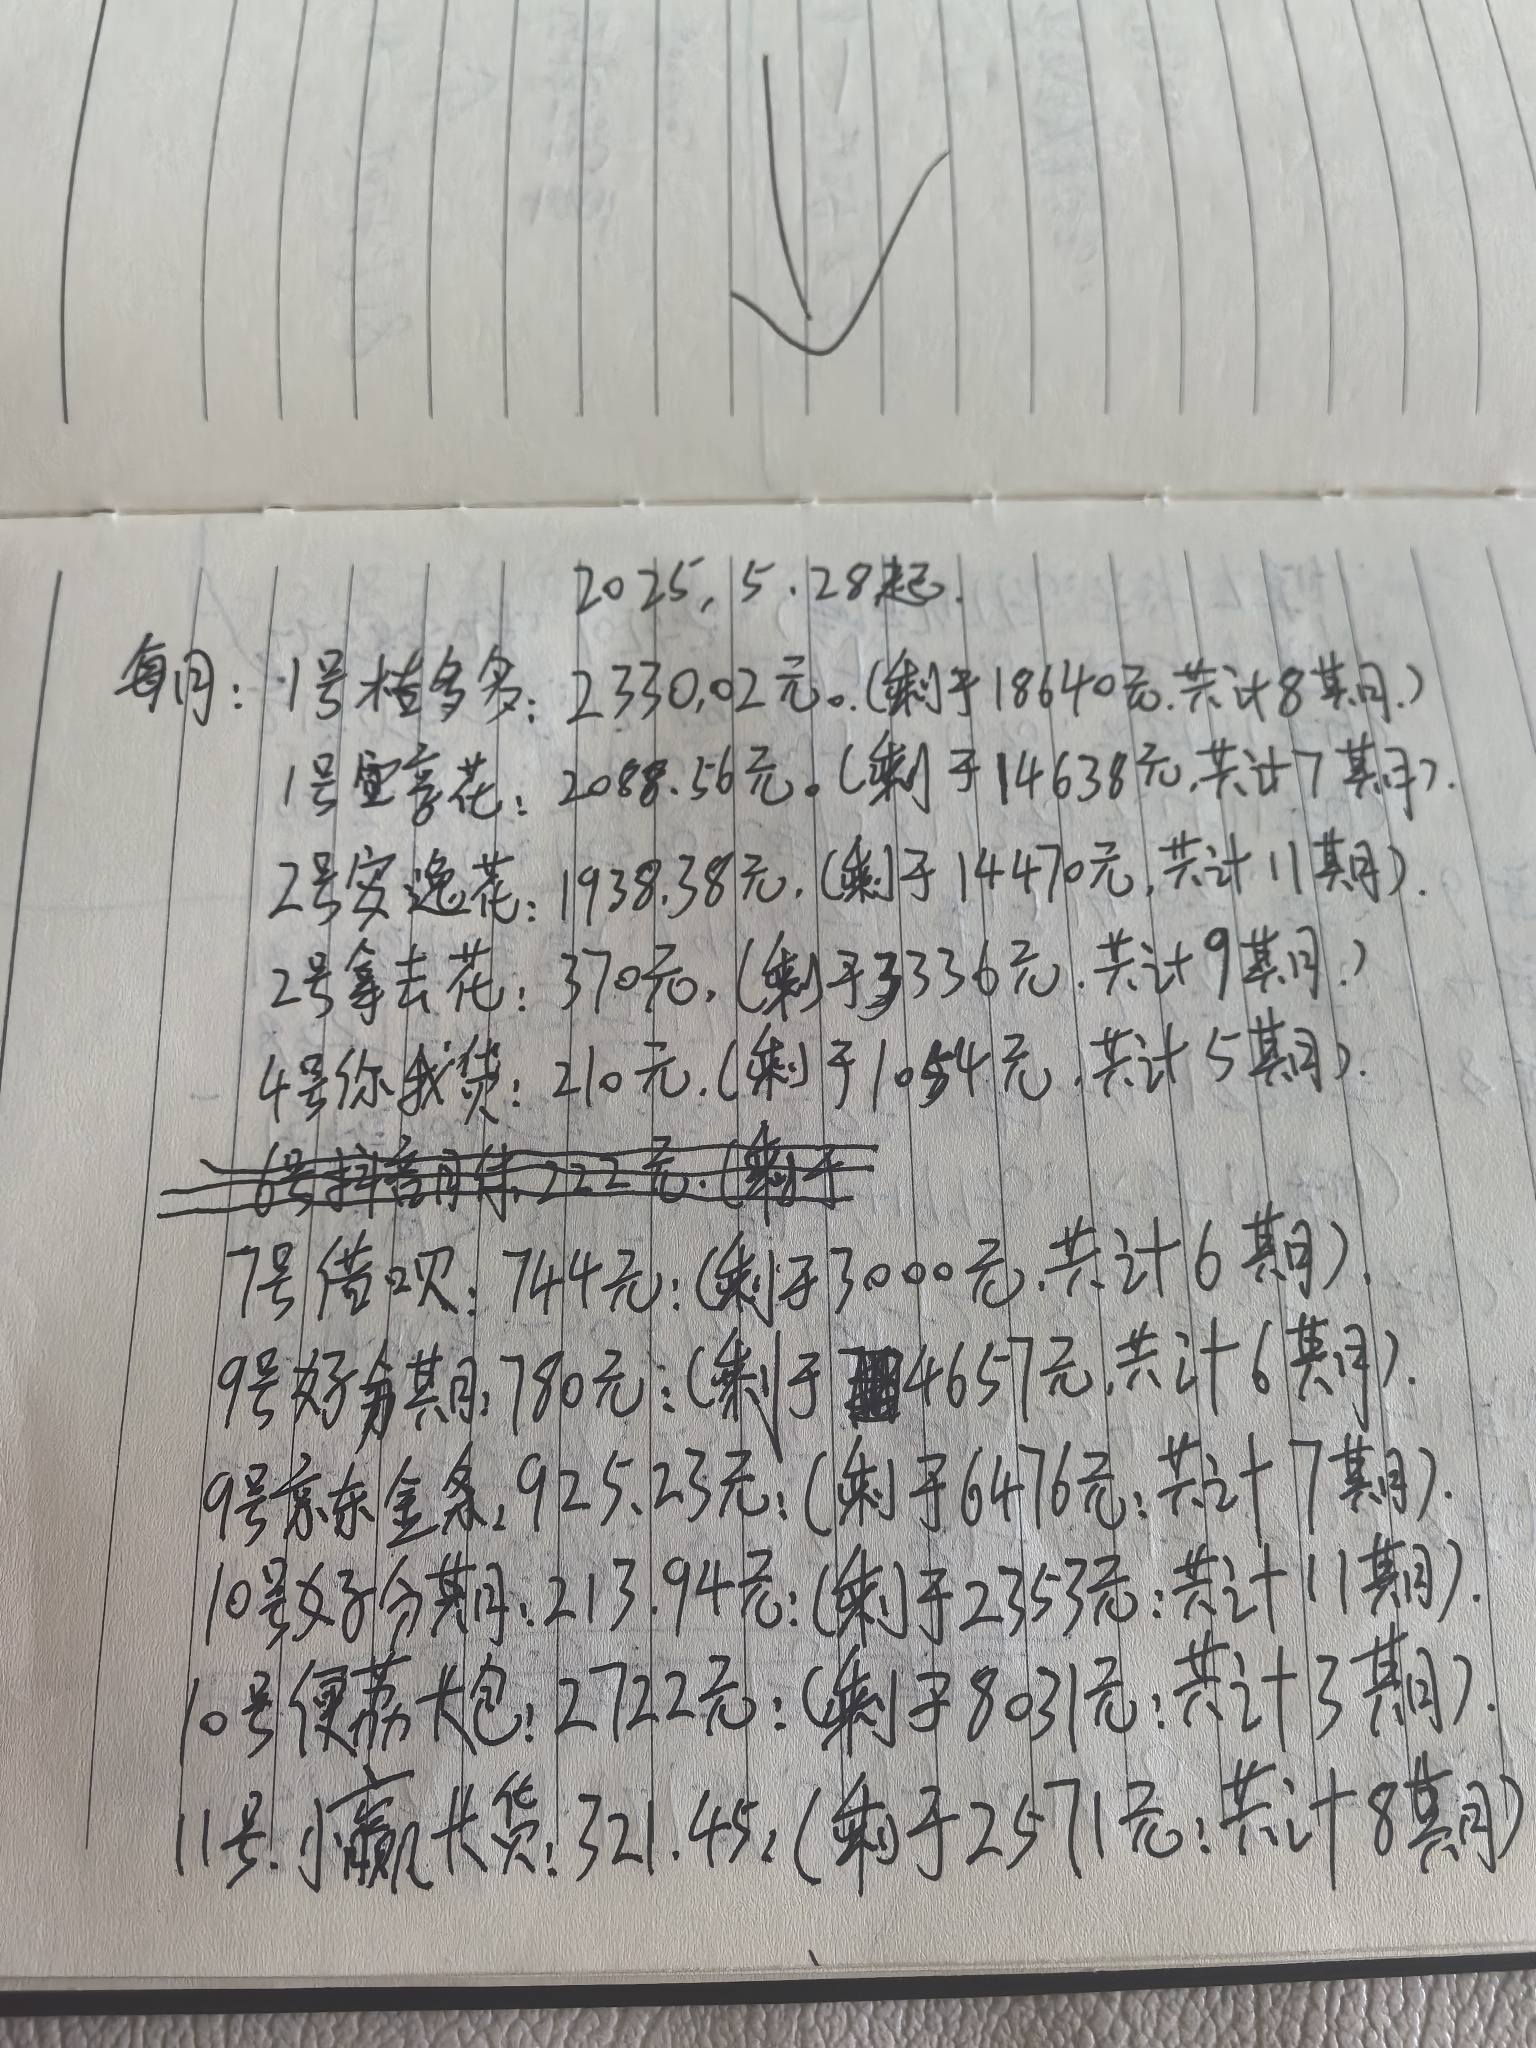 2025.5.28起.
每月: 1号桔多多: 2330.02元。(剩于18640元.共计8期.)
1号宜享花: 2088.56元。(剩于14638元.共计7期).
2号安逸花: 1938.38元.(剩于14470元.共计11期).
2号拿去花: 370元.(剩于3336元.共计9期.)
4号你我贷: 210元.(剩于1054元.共计5期).
6号抖音月付.222元.(剩于
7号借呗: 744元:(剩于3000元.共计6期).
9号好分期: 780元:(剩于4657元.共计6期).
9号京东金条: 925.23元:(剩于6476元:共计7期).
10号好分期: 213.94元:(剩于2353元:共计11期).
10号便荔卡包: 2722元:(剩于8031元:共计3期).
11号.小赢卡贷: 321.45:(剩于2571元:共计8期)